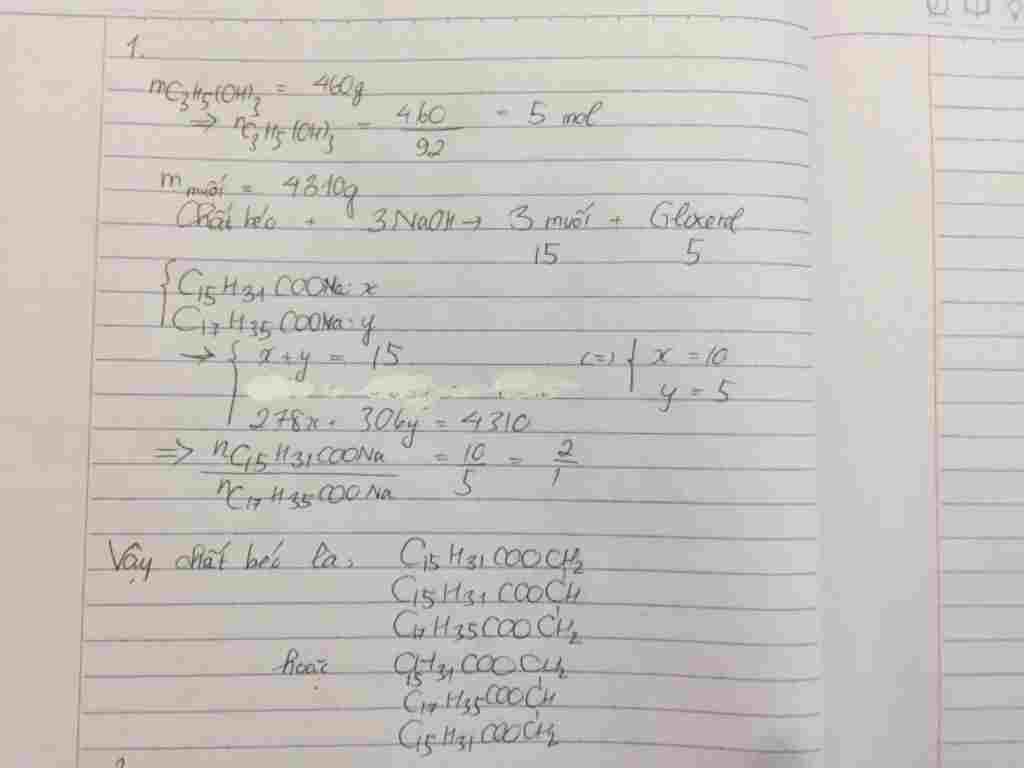 1.
mC₃H₅(OH)₃ = 460g
⇒ nC₃H₅(OH)₃ = 460/92 = 5 mol
m muối = 4310g
Chất béo + 3NaOH → 3 muối + Glixerol
15 5
{ C₁₅H₃₁COONa: x
C₁₇H₃₅COONa: y
→ { x + y = 15 (=) { x = 10
y = 5
278x + 306y = 4310
⇒ nC₁₅H₃₁COONa / nC₁₇H₃₅COONa = 10/5 = 2/1
Vậy chất béo là: C₁₅H₃₁COOCH₂
C₁₅H₃₁COOCH
C₁₇H₃₅COOCH₂
hoặc C₁₅H₃₁COOCH₂
C₁₇H₃₅COOCH
C₁₅H₃₁COOCH₂